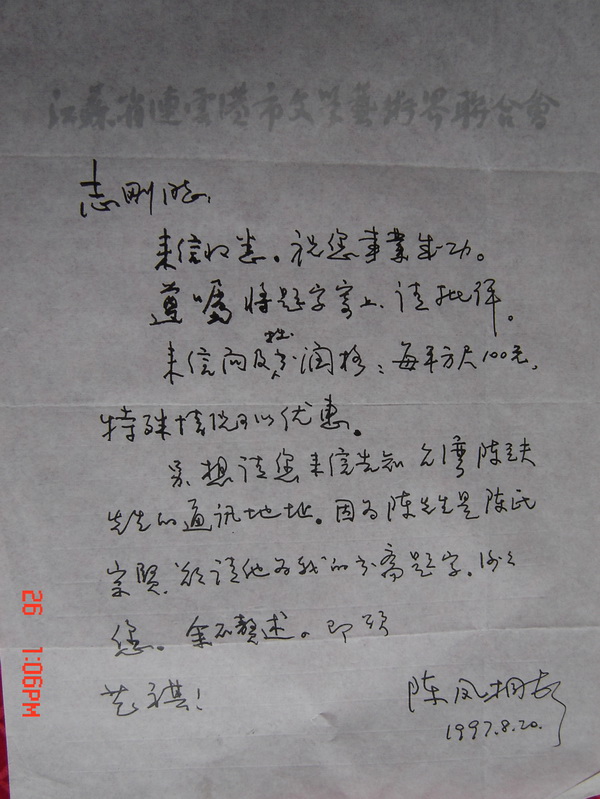 江苏省连云港市文学艺术界联合会
志刚
来信收悉。祝您事业成功。
遵嘱将题字寄上、请批评。
来信问及拙书润格：每平方尺100元，
特殊情况可以优惠。
另、想请您来信告知台湾陈立夫
先生的通讯地址。因为陈先生是陈氏
宗贤、欲请他为我的书斋题字。谢谢
您。余不赘述。即颂
艺祺！
陈凤桐
1997.8.20.
26 1:06PM